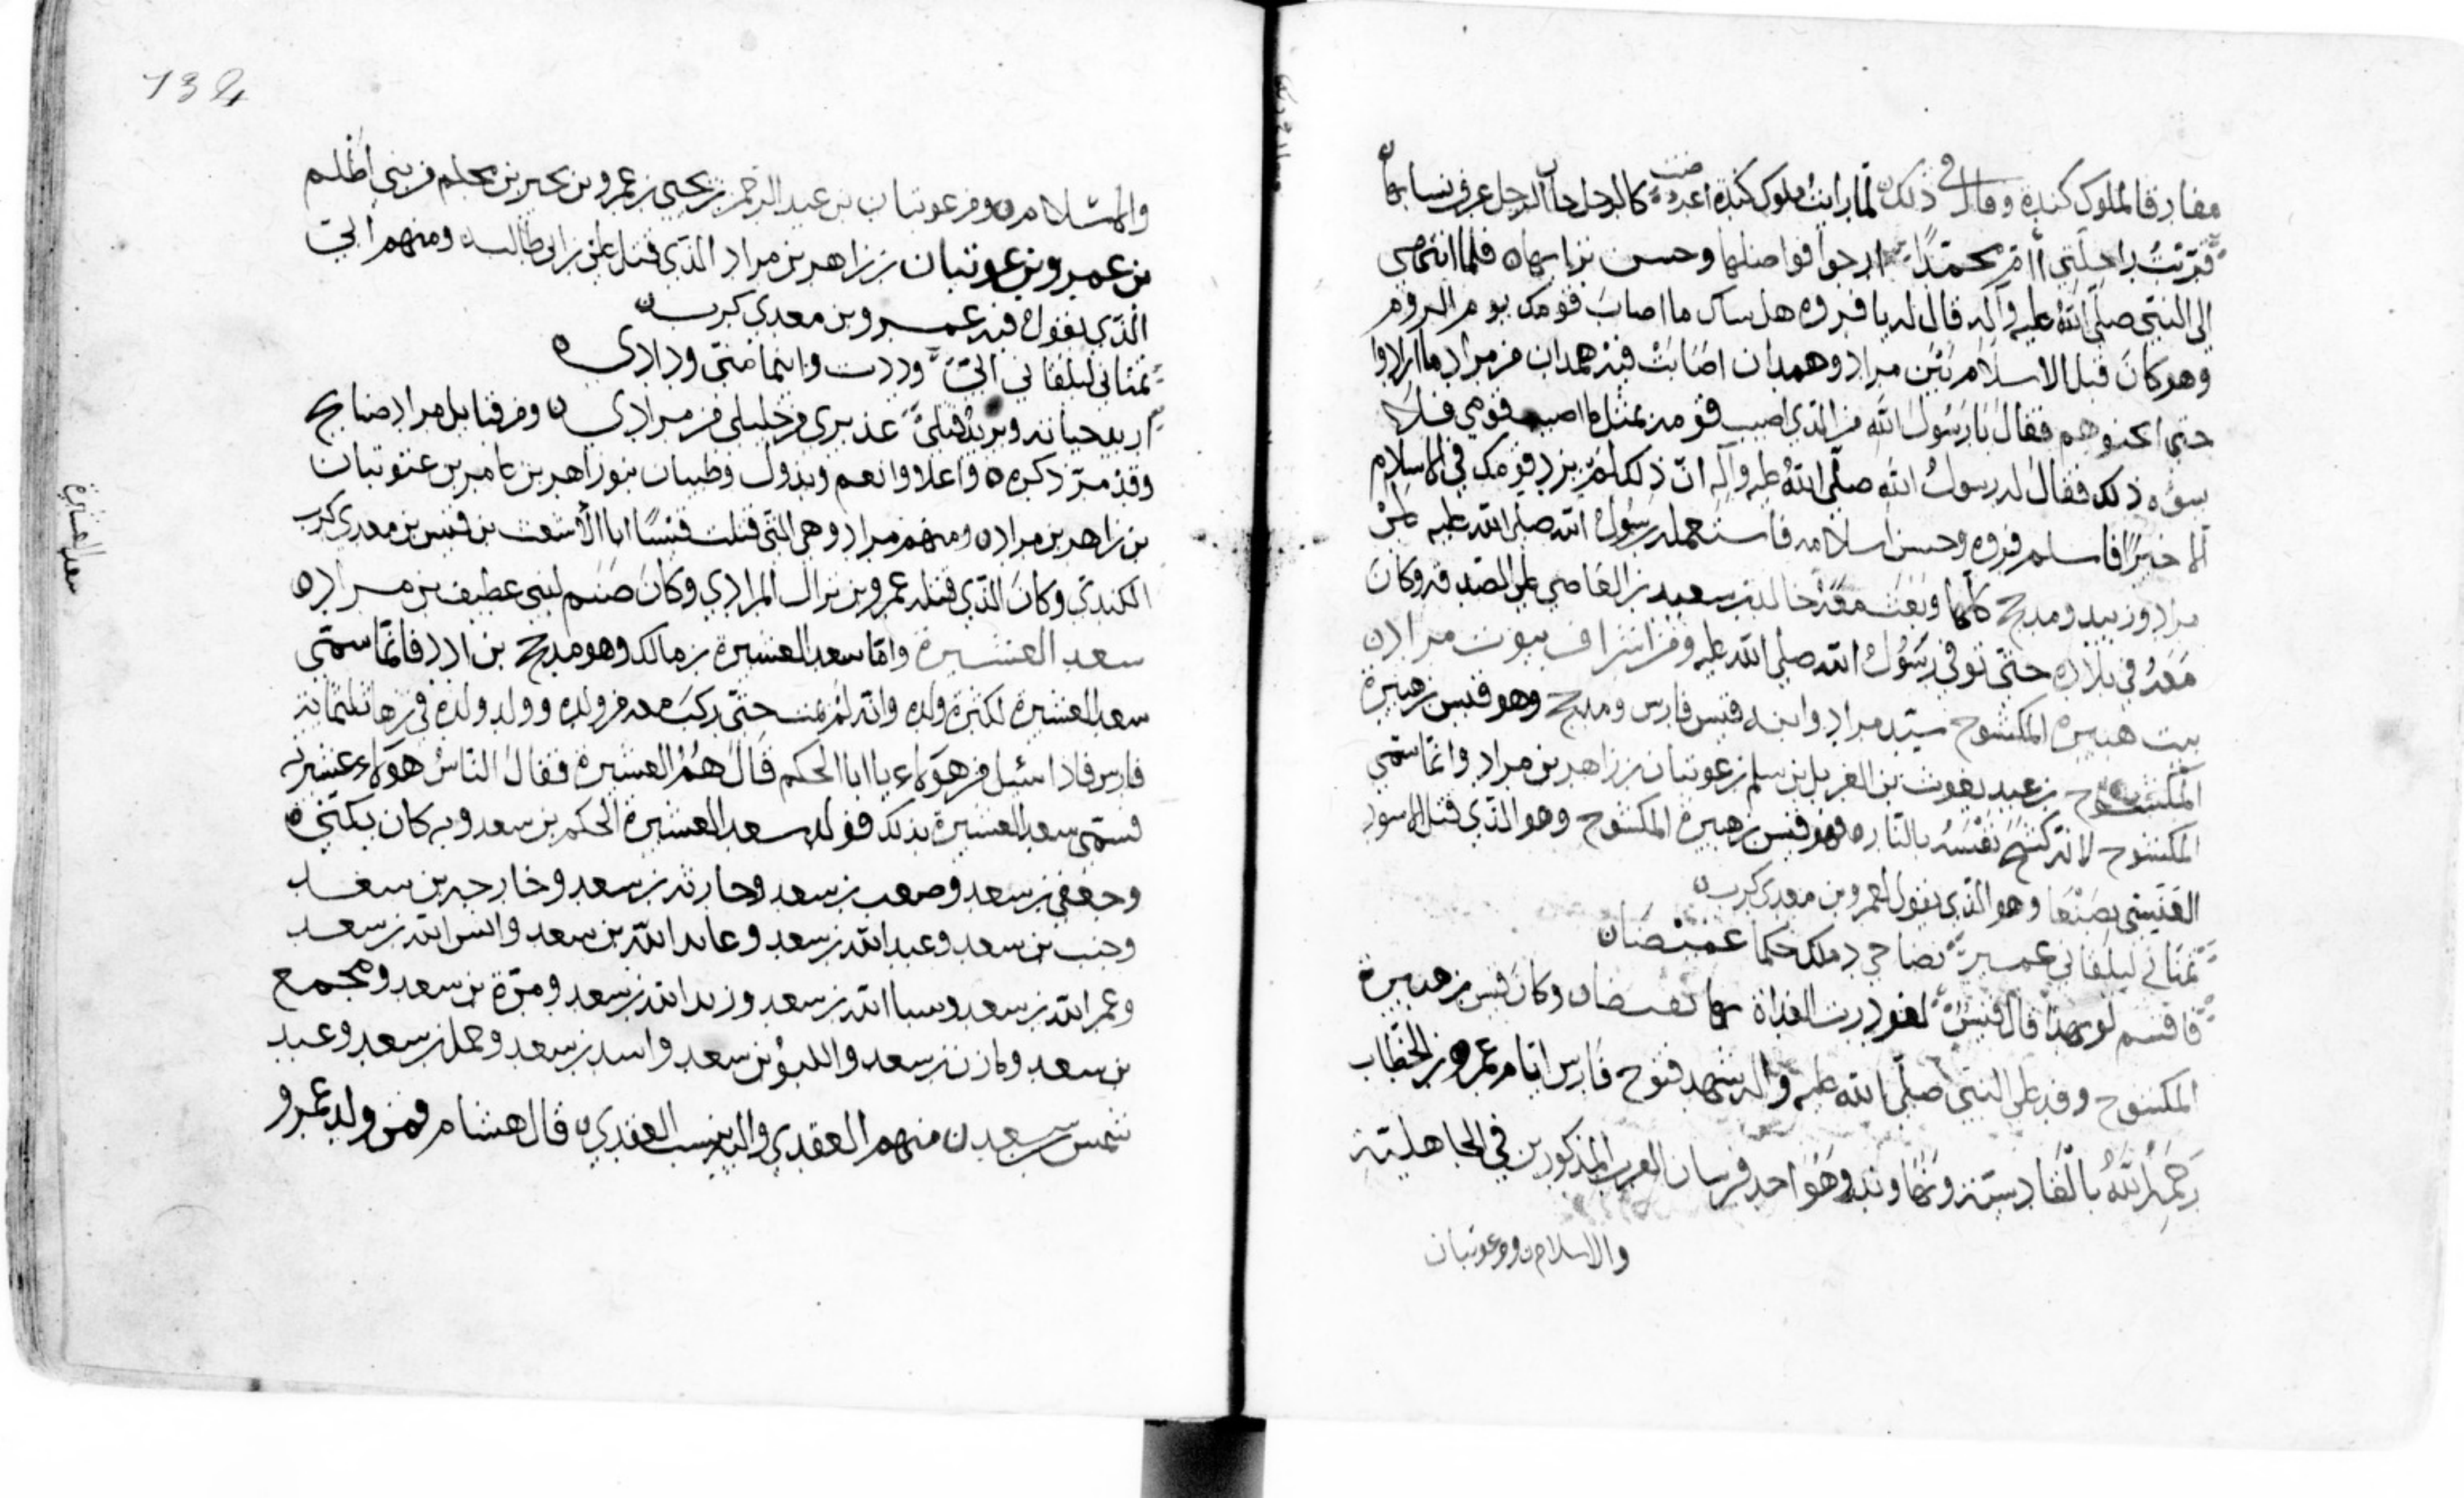 مفارقا لملوك كندة وقال في ذلك لما رايت ملوك كندة اعرضت كالرجل خان الرجل عرق نسايها
قربت راحلتي اام محمدا ارجوا فواضلها وحسن ثرايها فلما انتهى
الى النبي صلى الله عليه وآله قال له يا فروه هل ساك ما اصاب قومك يوم الروم
وهو كان قبل الاسلام بين مراد وهمدان اصابت فيه همدان من مراد ما ارادوا
حتى اثخنوهم فقال يا رسول الله من الذي اصيب قومه بمثل ما اصيب قومي فلا
يسوه ذلك فقال له رسول الله صلى الله عليه وآله ان ذلك لم يزد قومك في الاسلام
الا خيرا فاسلم فروه وحسن اسلامه فاستعمله رسول الله صلى الله عليه على
مراد وزبيد ومذحج كلها وبعث معه خالد بن سعيد بن العاصي على الصدقه وكان
معه في بلاده حتى توفي رسول الله صلى الله عليه ومن اشراف بيوت مراد
بيت هبيره المكشوح سيد مراد وابنه قيس فارس ومذحج وهو قيس بن هبيرة
المكشوح بن عبد يغوث بن الغزيل بن سلم بن عوتبان بن زاهر بن مراد وانما سمي
المكشوح لانه كشح نفسه بالنار فهو قيس بن هبيرة المكشوح وهو الذي قتل الاسود
العنسي بصنعا وهو الذي يقول لعمرو بن معدي كرب
تمناني ليلقاني عمير
فاقسم لو بهذا قال قيس لغودرت الغداة بها وكان قيس بن هبيرة
المكشوح وفد على النبي صلى الله عليه وآله شهد فتوح فارس ايام عمر بن الخطاب
رحمه الله بالقادسية ونهاوند وهو احد فرسان العرب المذكورين في الجاهلية
والاسلام ومن عوتبان
134
والاسلام ومن عوتبان بن عبد الرحمن بن يحيى بن عمرو بن يحير بن محلم من بني اظلم
بن عمرو بن عوتبان بن زاهر بن مراد الذي قتل علي بن ابي طالب ومنهم ابي
الذي يقول فيه عمرو بن معدي كرب
تمناني ليلقاني ابي وددت واينما مني ودادي
اريد حياته ويريد قتلي عذيري من خليلي من مرادي ومن قبايل مراد صنابح
وقد مر ذكره واعلا وانعم وبدول وظبيان بنو زاهر بن عامر بن عوتبان
بن زاهر بن مراد ومنهم مراد وهي التي قتلت قيسا ابا الاشعث بن قيس بن معدي كرب
الكندي وكان الذي قتله عمرو بن نزال المرادي وكان صنم لبني غطيف بن مراد
سعد العشيرة واما سعد العشيرة بن مالك وهو مذحج بن ادد فانما سمي
سعد العشيرة لكثرة ولده وانه لم يمت حتى ركب معه من ولده وولد ولده في زها ثلثماية
فارس فاذا سئل من هولاء يا ابا الحكم قال هم العشيرة فقال الناس هولاء عشيرته
فسمي سعد العشيرة بذلك فولد سعد العشيرة الحكم بن سعد وبه كان يكنى
وجعفي بن سعد وصعب بن سعد وحارثه بن سعد وخارجه بن سعد
وجنب بن سعد وعبد الله بن سعد وعايد الله بن سعد وانس الله بن سعد
وعمر الله بن سعد وسبا الله بن سعد وزيد الله بن سعد ومرة بن سعد ومجمع
بن سعد ومازن بن سعد واللبؤ بن سعد واسد بن سعد وحمل بن سعد وعبد
شمس بن سعد منهم العقدي واليه ينسب العقدي قال هشام فمن ولد عمرو
سعد العشيرة